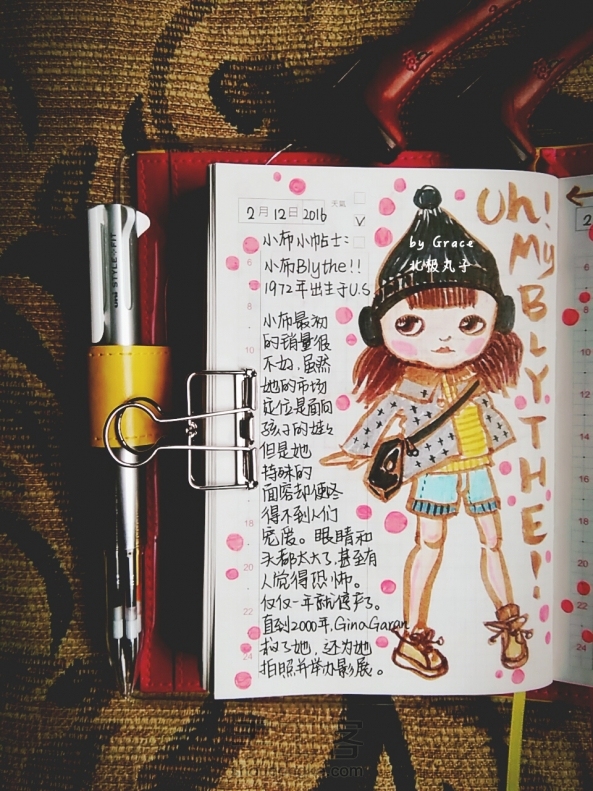 2月12日2016
天氣
小布小帖士:
小布Blythe!!
1972年出生于U.S
小布最初
的销量很
不好,虽然
她的市场
定位是面向
孩子的娃娃
但是她
特殊的
面容却使终
得不到人们
宠爱。眼睛和
头都太大了,甚至有
人觉得恐怖。
仅仅一年就停产了。
直到2000年,Gina Garan
救了她,还为她
拍照并举办影展。
by Grace
北极丸子
Uh!
My
BLYTHE!!
UNI STYLE FIT
6
8
10
18
20
22
24
2